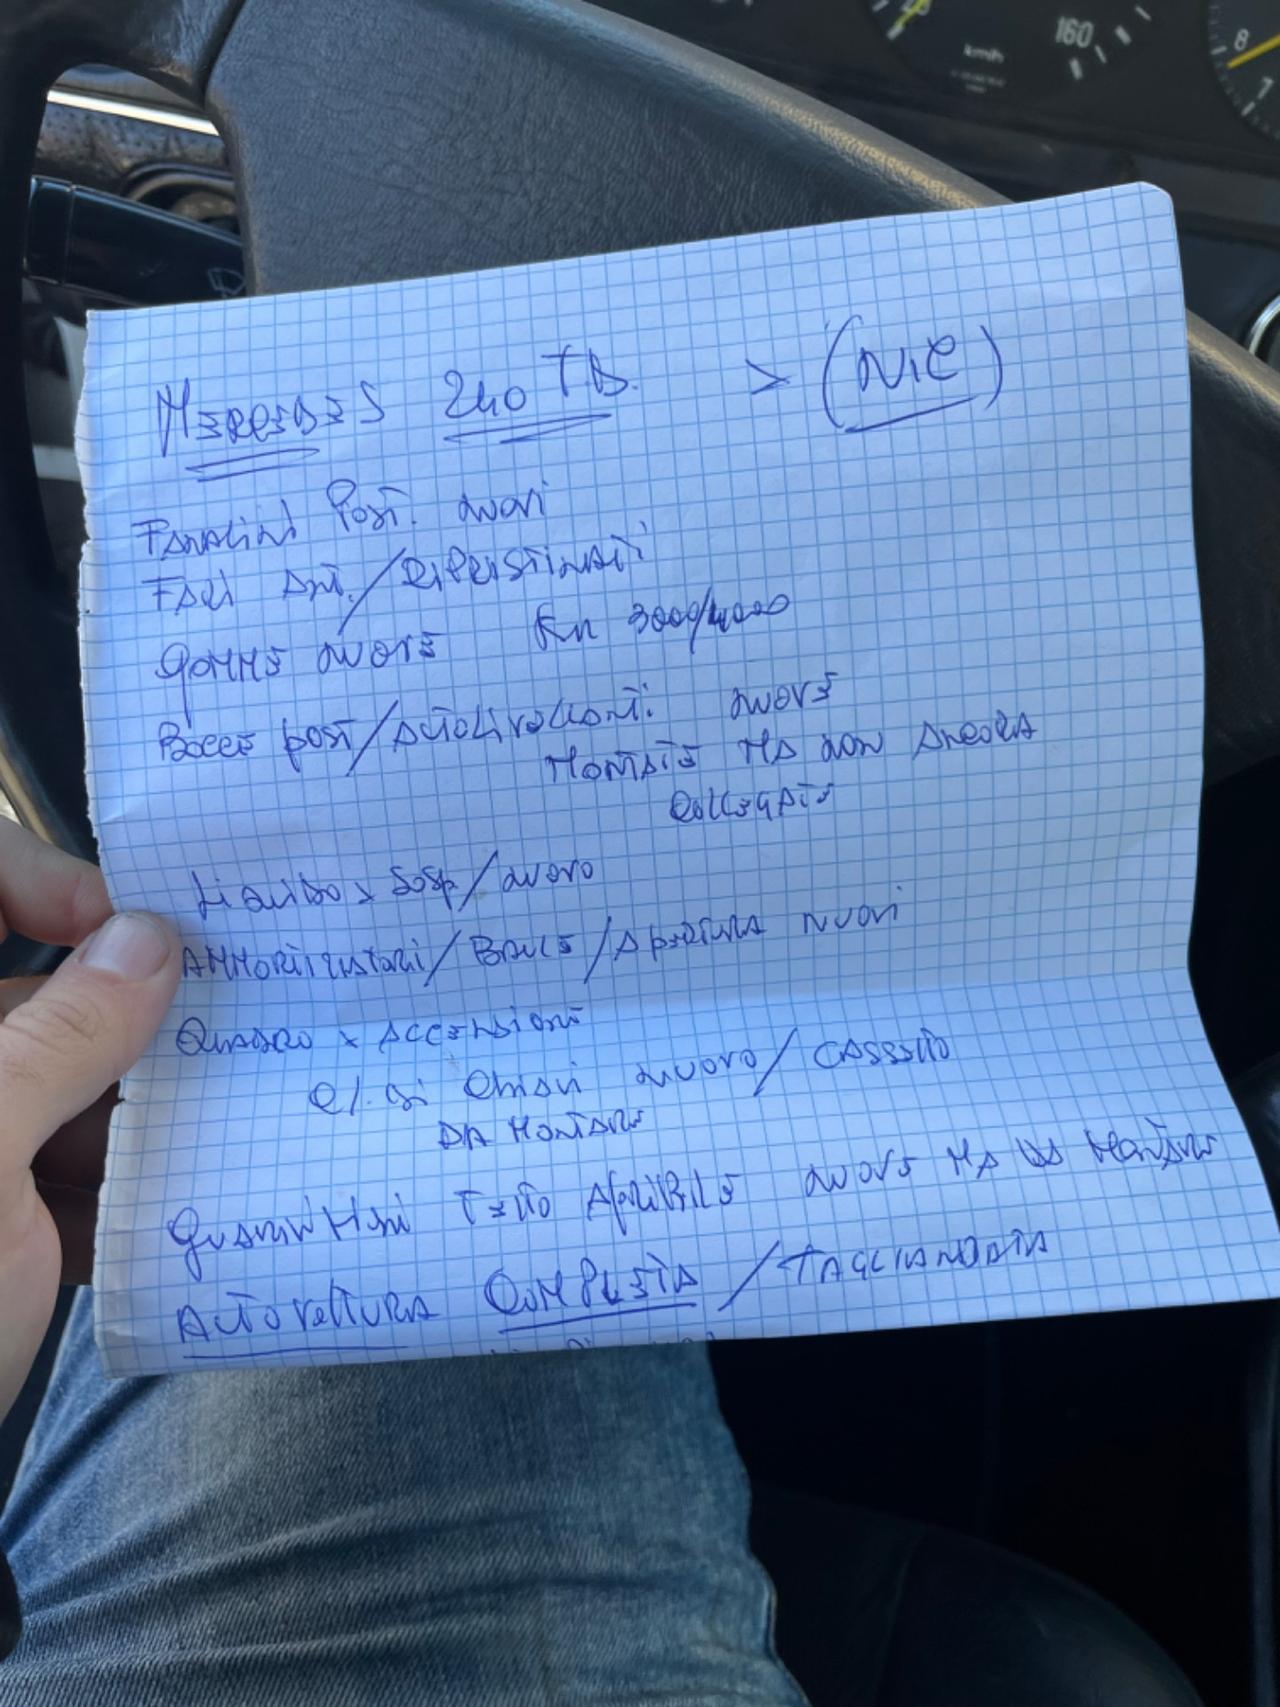 160
km/h
8
7
MERCEDES 240 T.D. > (NIC)
FANALINI POST. NUOVI
FARI ANT. / RIPRISTINATI
GOMME NUOVE KM 3000/4000
BOCCE POST / AUTOLIVELLANTI NUOVE
MONTATE MA NON ANCORA
COLLEGATE
LIQUIDO X SOSP / NUOVO
AMMORTIZZATORI / BAULE / APERTURA NUOVI
QUADRO X ACCENSIONE
CHIAVI NUOVO / CASSETTO
DA MONTARE
GUARNIZIONI TETTO APRIBILE NUOVE MA DA MONTARE
AUTOVETTURA COMPLETA / TAGLIANDATA